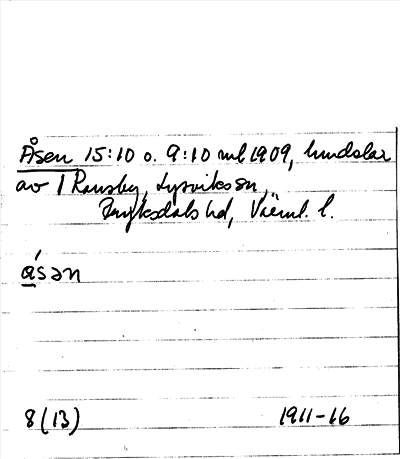 Åsen 15:10 o. 9:10 ml 1909, lundslar
av 1 Ransby, Lysviks sn,
Fryksdals hd, Värml. l.
ásən
8 (13) 1911-16